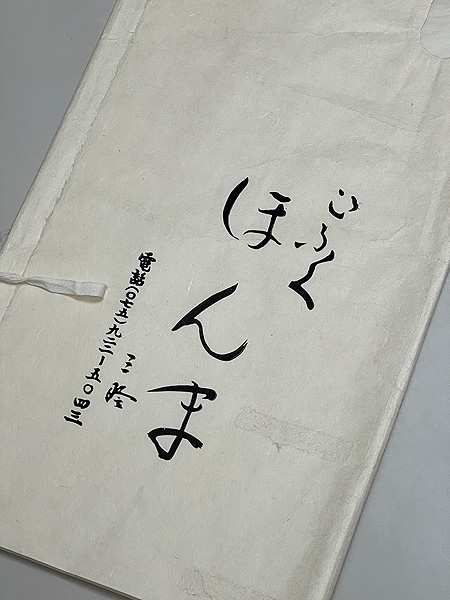 ごふく
ほんま
電話(〇七五)九二二ー五〇四三